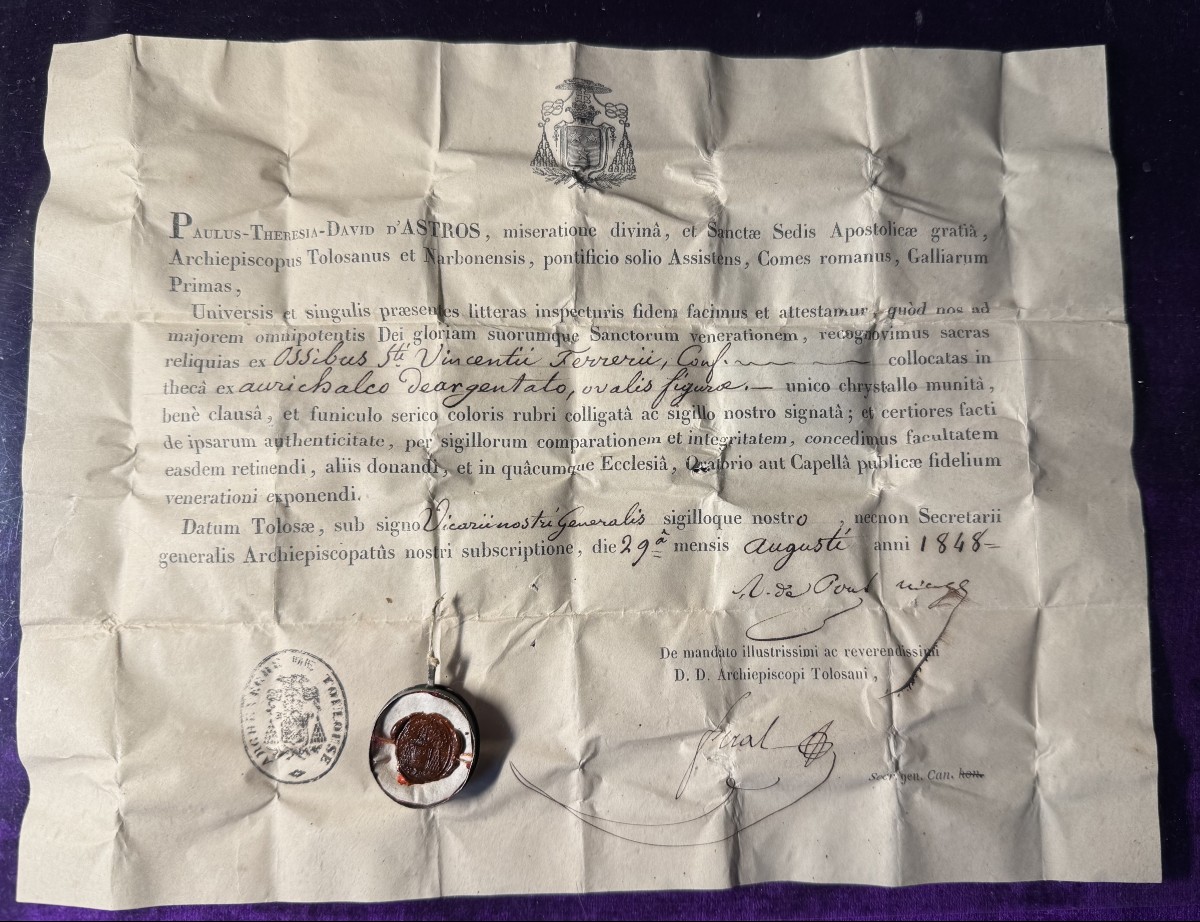 PAULUS-THERESIA-DAVID D'ASTROS, miseratione divinâ, et Sanctæ Sedis Apostolicæ gratiâ,
Archiepiscopus Tolosanus et Narbonensis, pontificio solio Assistens, Comes romanus, Galliarum
Primas,
Universis et singulis præsentes litteras inspecturis fidem facimus et attestamur, quòd nos ad
majorem omnipotentis Dei gloriam suorumque Sanctorum venerationem, recognovimus sacras
reliquias ex Ossibus Sti Vincentii Ferrerii, Conf. collocatas in
thecâ ex aurichalco deargentato, ovalis figuræ.— unico chrystallo munitâ,
benè clausâ, et funiculo serico coloris rubri colligatâ ac sigillo nostro signatâ; et certiores facti
de ipsarum authenticitate, per sigillorum comparationem et integritatem, concedimus facultatem
easdem retinendi, aliis donandi, et in quâcumque Ecclesiâ, Oratorio aut Capellâ publicæ fidelium
venerationi exponendi.
Datum Tolosæ, sub signo Vicarii nostri Generalis sigilloque nostro, necnon Secretarii
generalis Archiepiscopatûs nostri subscriptione, die 29â mensis augusti anni 1848=
De mandato illustrissimi ac reverendissimi
D. D. Archiepiscopi Tolosani,
Secr. gen. Can. hon.
ARCHEVÊCHÉ DE TOULOUSE